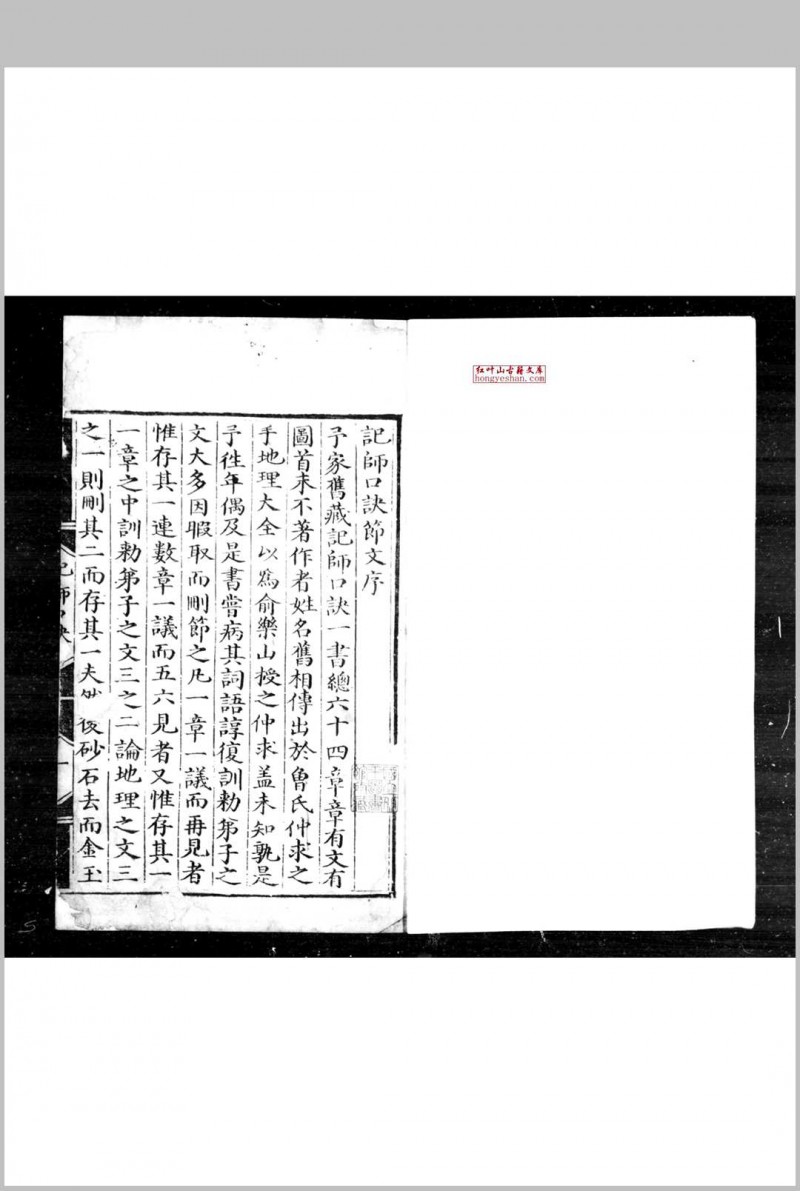 红叶山古籍文库
hongyeshan.com
記師口訣節文序
予家舊藏記師口訣一書總六十四章章有文有
圖首末不著作者姓名舊相傳出於魯氏仲求之
手地理大全以爲俞樂山授之仲求盖未知孰是
予徃年偶及是書嘗病其詞語諄復訓勅苐子之
文大多因暇取而刪節之凡一章一議而再見者
惟存其一連數章一議而五六見者又惟存其一
一章之中訓勅苐子之文三之二論地理之文三
之一則刪其二而存其一夫然後砂石去而金玉
記師口訣